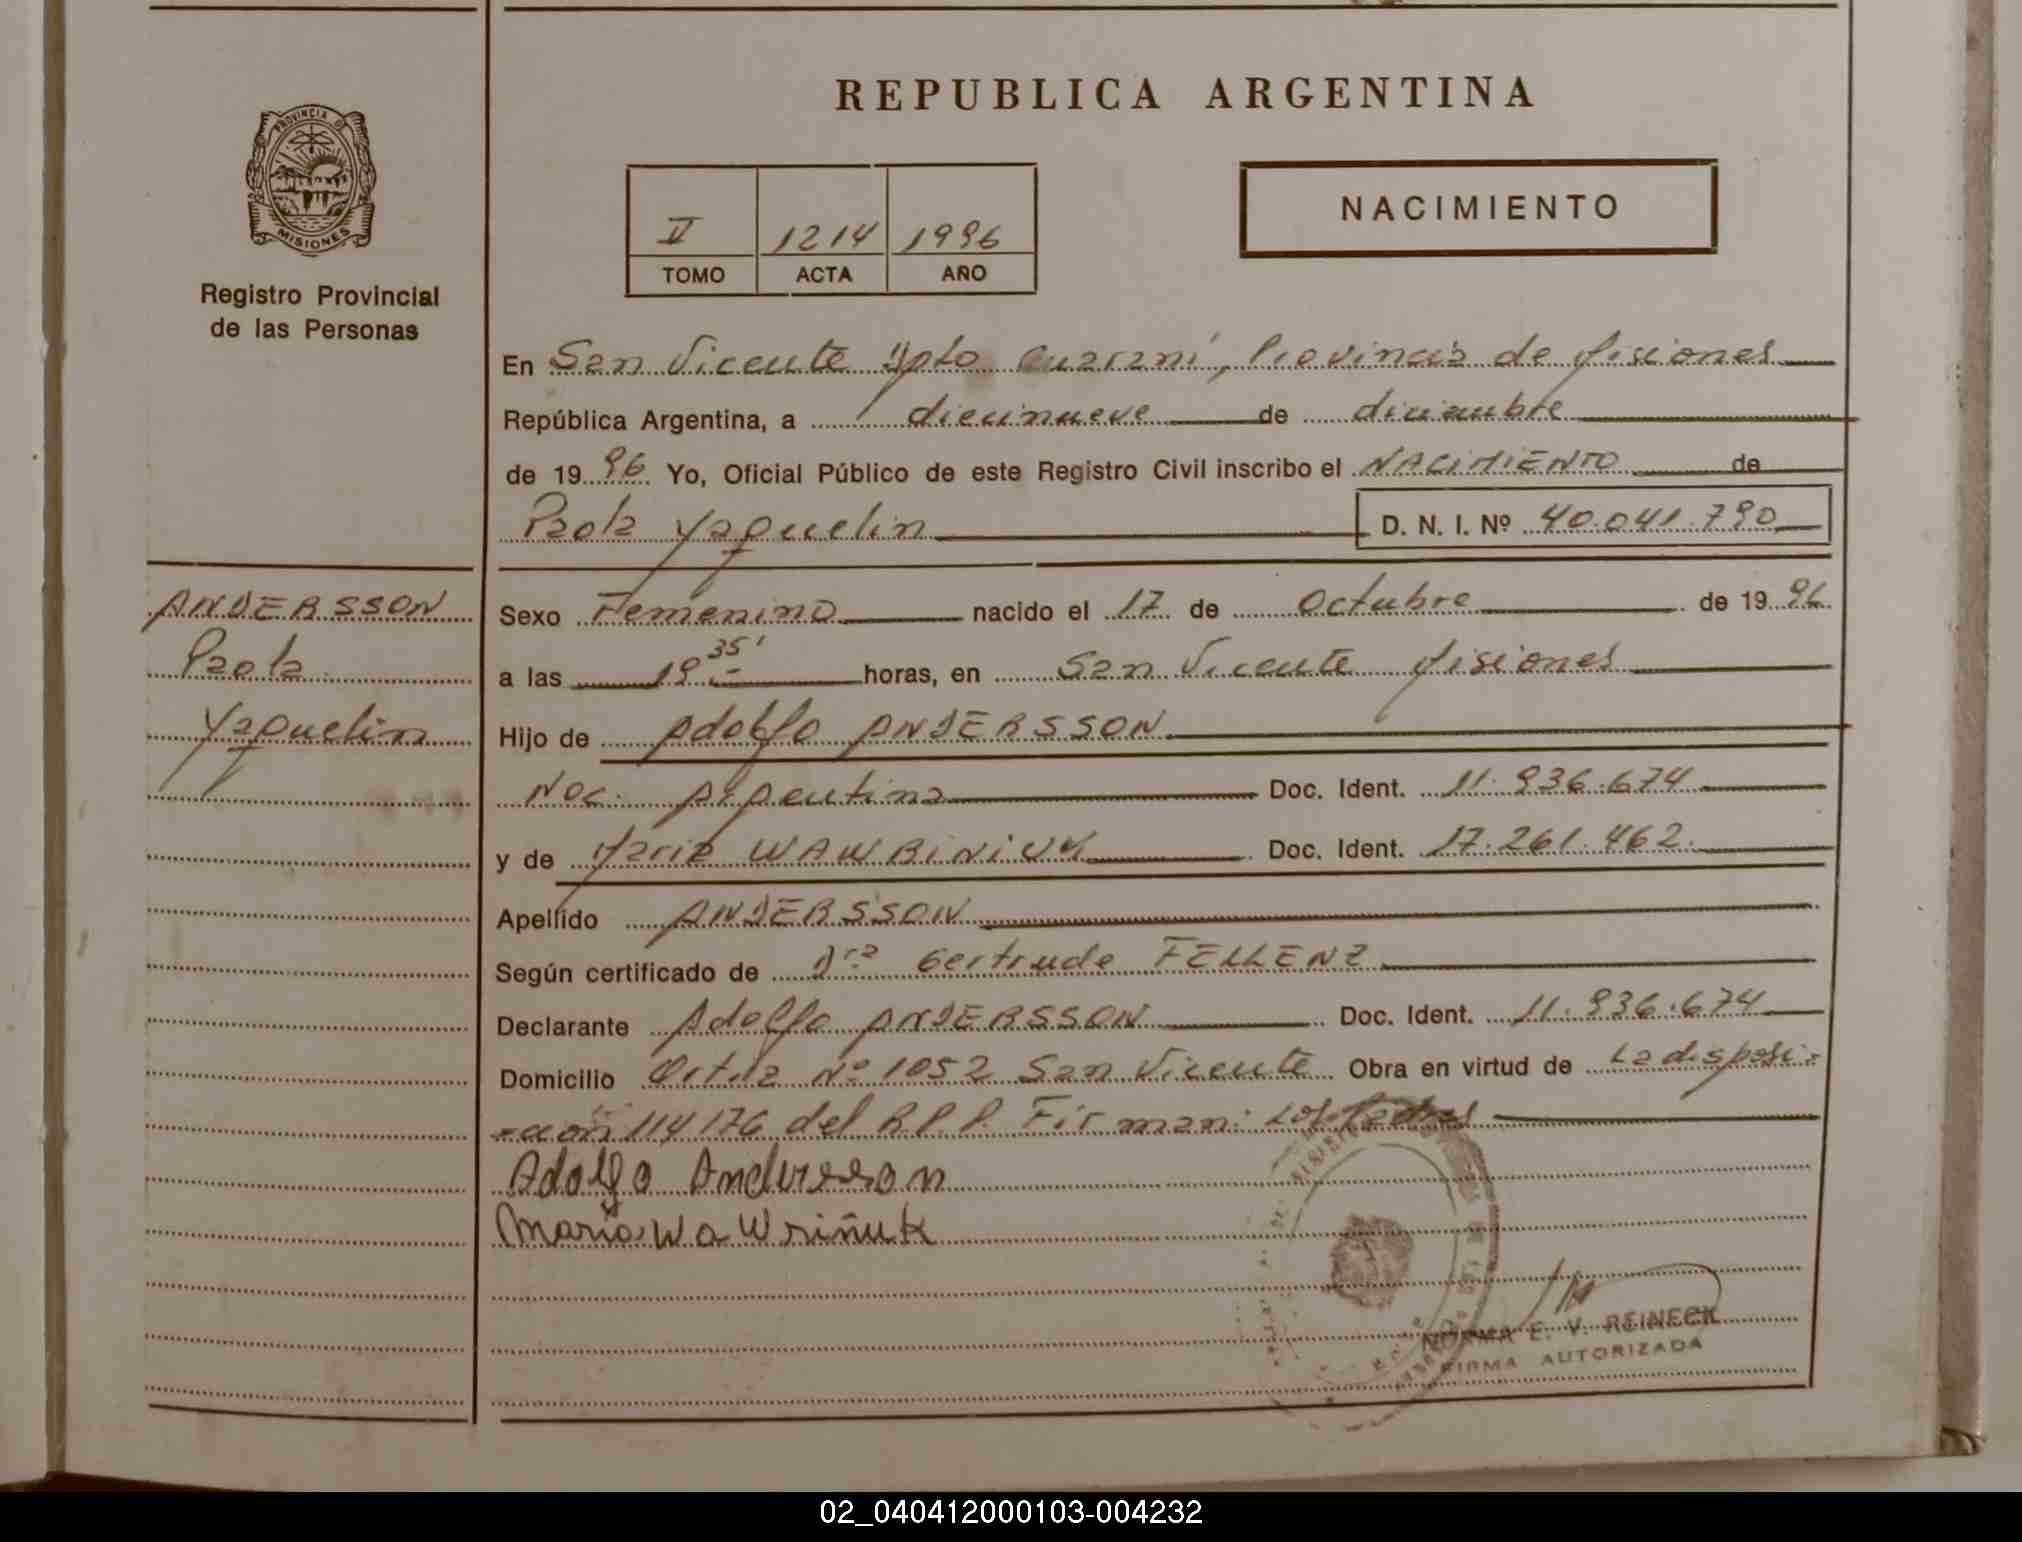 REPUBLICA ARGENTINA
PROVINCIA DE
MISIONES
Registro Provincial
de las Personas
V 1214 1996
TOMO ACTA AÑO
NACIMIENTO
En San Vicente Dpto Guaraní, Provincia de Misiones
República Argentina, a diecinueve de diciembre
de 1996 Yo, Oficial Público de este Registro Civil inscribo el NACIMIENTO de
Paola Yaquelin D. N. I. Nº 40.041.790
ANDERSSON
Paola
Yaquelin
Sexo Femenino nacido el 17 de Octubre de 1996
a las 19 35' horas, en San Vicente Misiones
Hijo de Adolfo ANDERSSON
Nac. Argentina Doc. Ident. 11.936.674
y de María Doc. Ident. 17.261.462
Apellido ANDERSSON
Según certificado de Dra Gertrude FELLENZ
Declarante Adolfo ANDERSSON Doc. Ident. 11.936.674
Domicilio Nº 1052 San Vicente Obra en virtud de La disposi-
-ción 114/76 del R.P.P. Firman: Los Padres
Adolfo Andersson
Maria Wawriñuk
NORMA E. V. REINECK
FIRMA AUTORIZADA
02_040412000103-004232